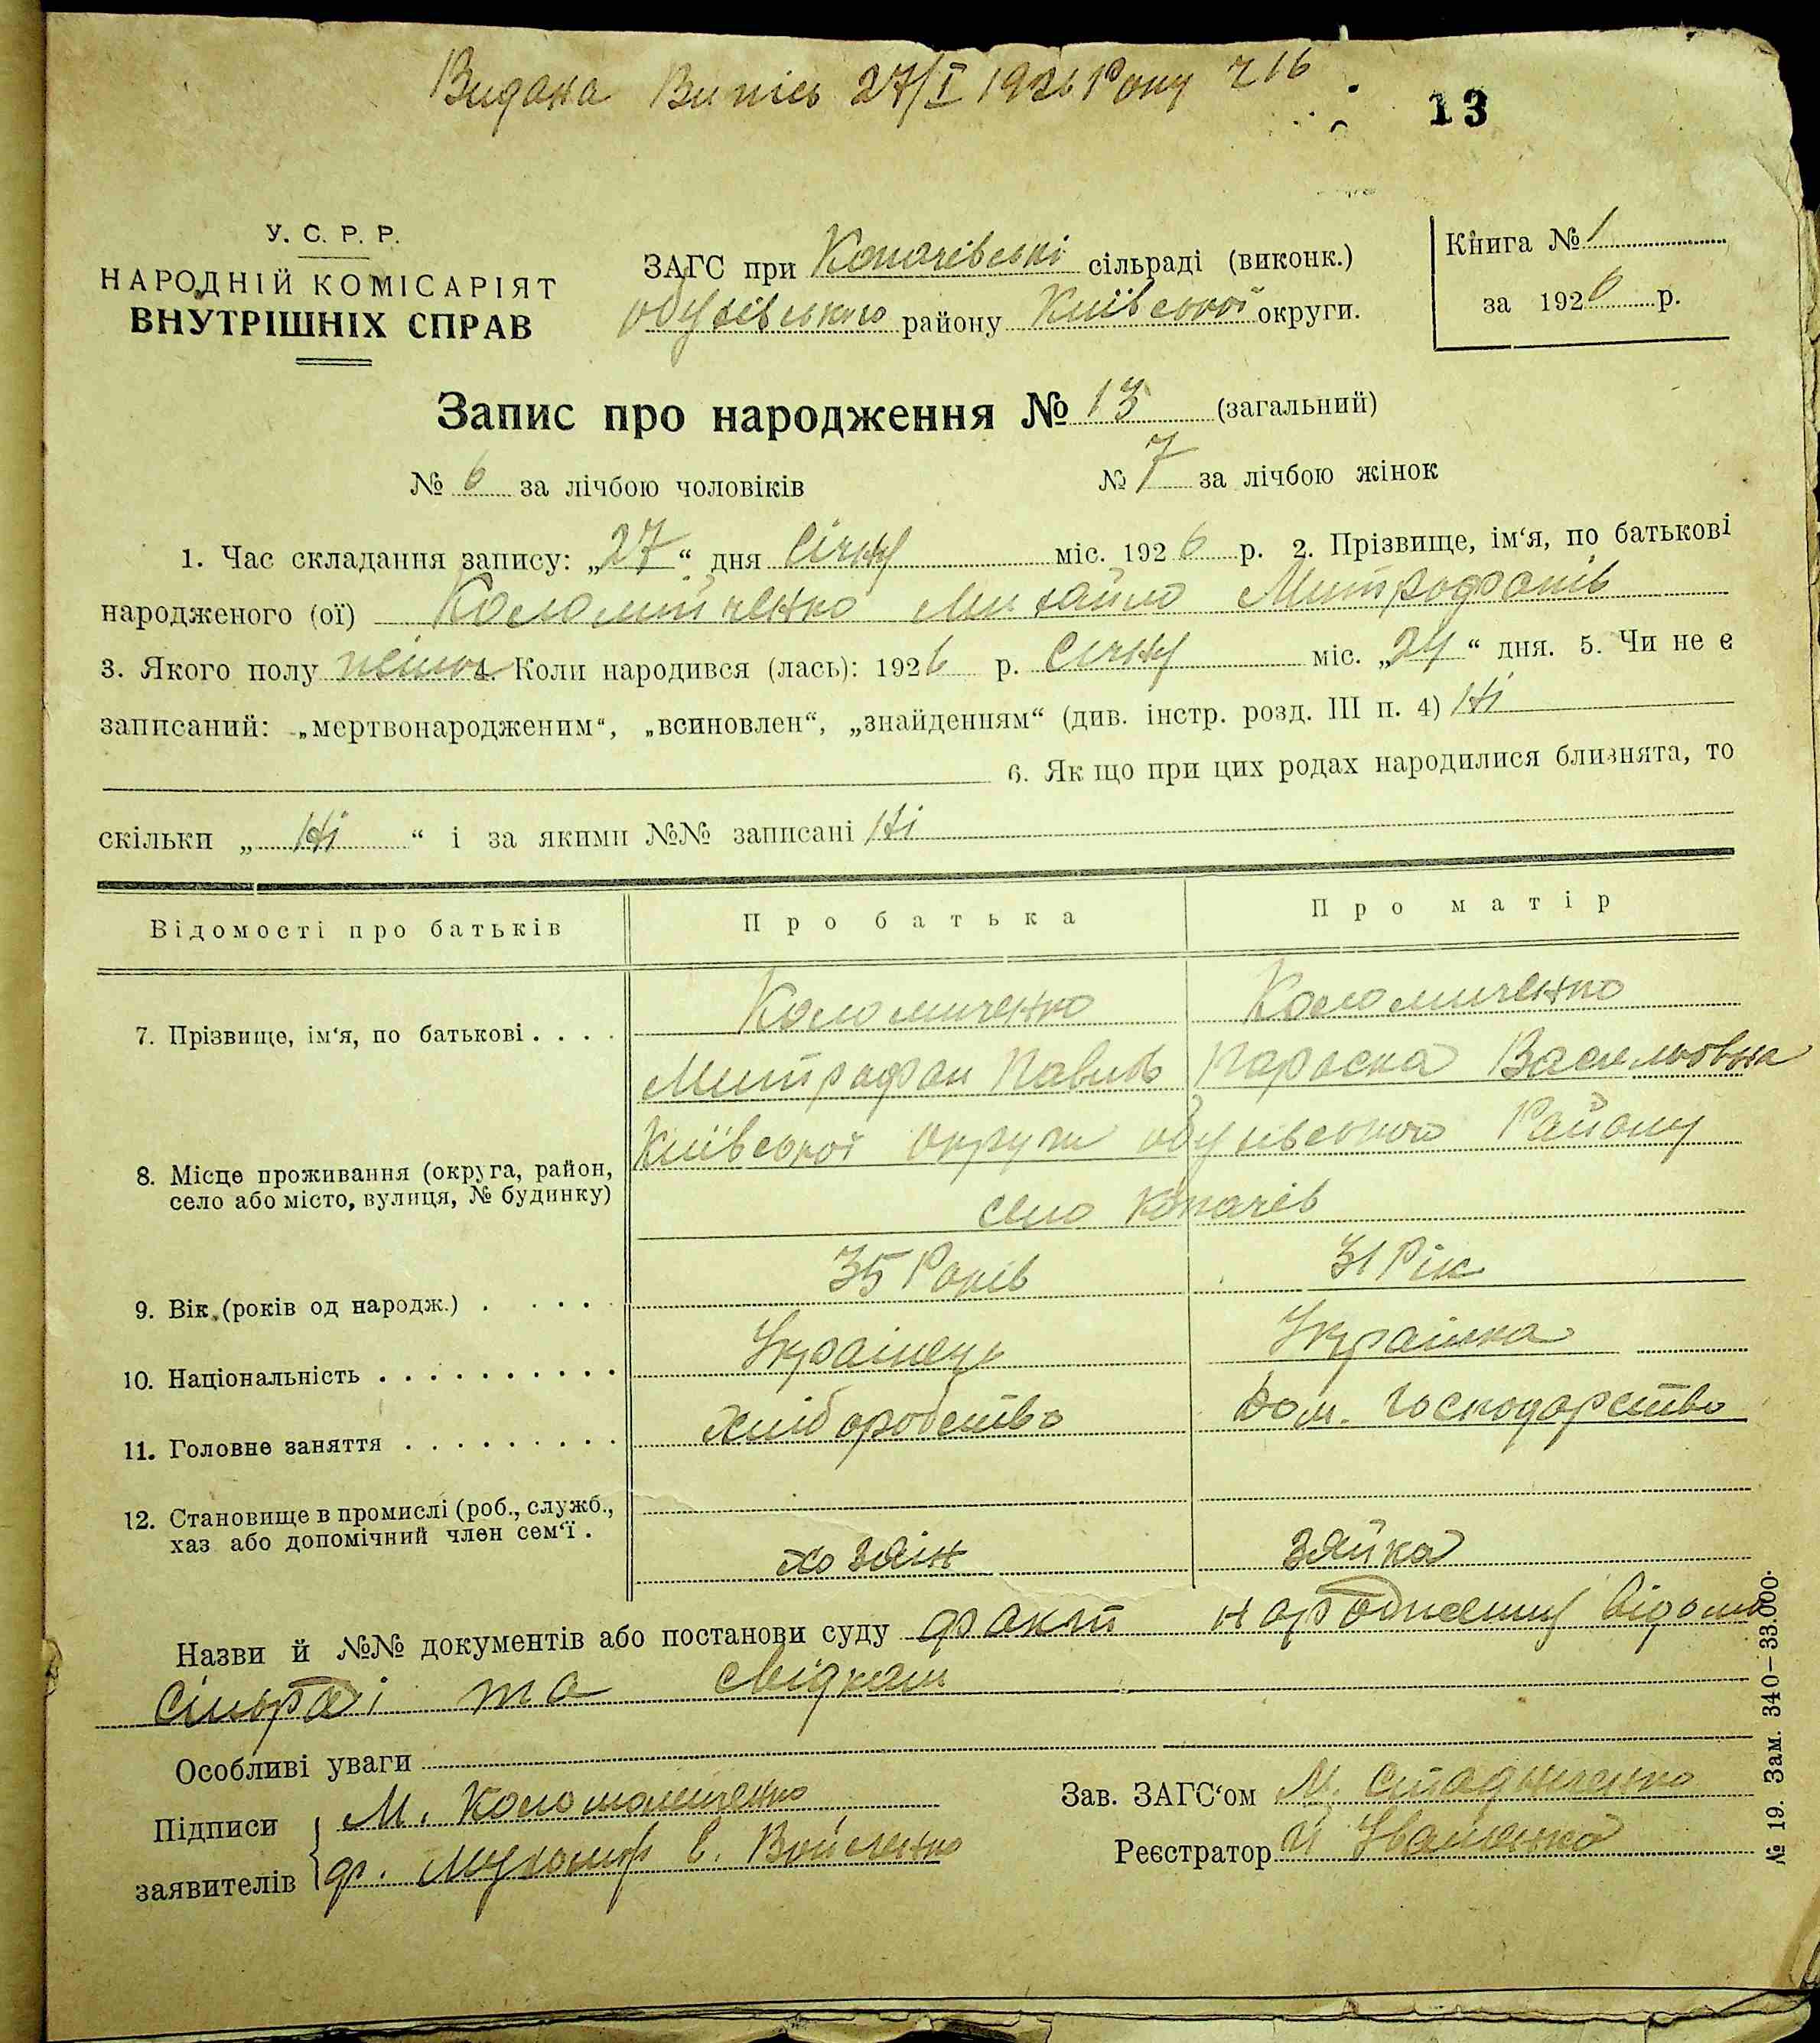 Видана Випись 27/I 1926 Року ч 16
13
У. С. Р. Р.
НАРОДНІЙ КОМІСАРІЯТ
ВНУТРІШНІХ СПРАВ
ЗАГС при Копачівські сільраді (виконк.)
району Київської округи.
Книга № 1
за 1926 р.
Запис про народження № 13 (загальний)
№ 6 за лічбою чоловіків № 7 за лічбою жінок
1. Час складання запису: „27“ дня Січня міс. 1926 р. 2. Прізвище, ім‘я, по батькові
народженого (ої) Коломийченко Михайло Митрофанів
3. Якого полу Коли народився (лась): 1926 р. Січня міс. „24“ дня. 5. Чи не є
записаний: „мертвонародженим“, „всиновлен“, „знайденням“ (див. інстр. розд. III п. 4) Ні
6. Як що при цих родах народилися близнята, то
скільки „ Ні “ і за якими №№ записані Ні
Відомості про батьків Про батька Про матір
7. Прізвище, ім‘я, по батькові . . . . Коломиченко Коломиченко
Митрофан Павлів Параска Васильовна
Київської округи Району
8. Місце проживання (округа, район,
село або місто, вулиця, № будинку)
село Копачів
9. Вік (років од народж.) . . . . 35 Років 31 Рік
10. Національність . . . . . . . . . . Українець Українка
11. Головне заняття . . . . . . . . . хліборобство Дом. господарство
12. Становище в промислі (роб., служб.,
хаз або допомічний член сем‘ї .
хозяін зяйка
Назви й №№ документів або постанови суду факт народження відома
сільраді та свідкам
Особливі уваги
Підписи М. Зав. ЗАГС‘ом М. Стадниченко
заявителів ф. Реєстратор Іваненко
№ 19. Зам. 340–33.000.